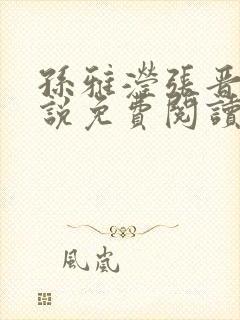 孫雅瀅張晋
說免費閱讀
風嵐